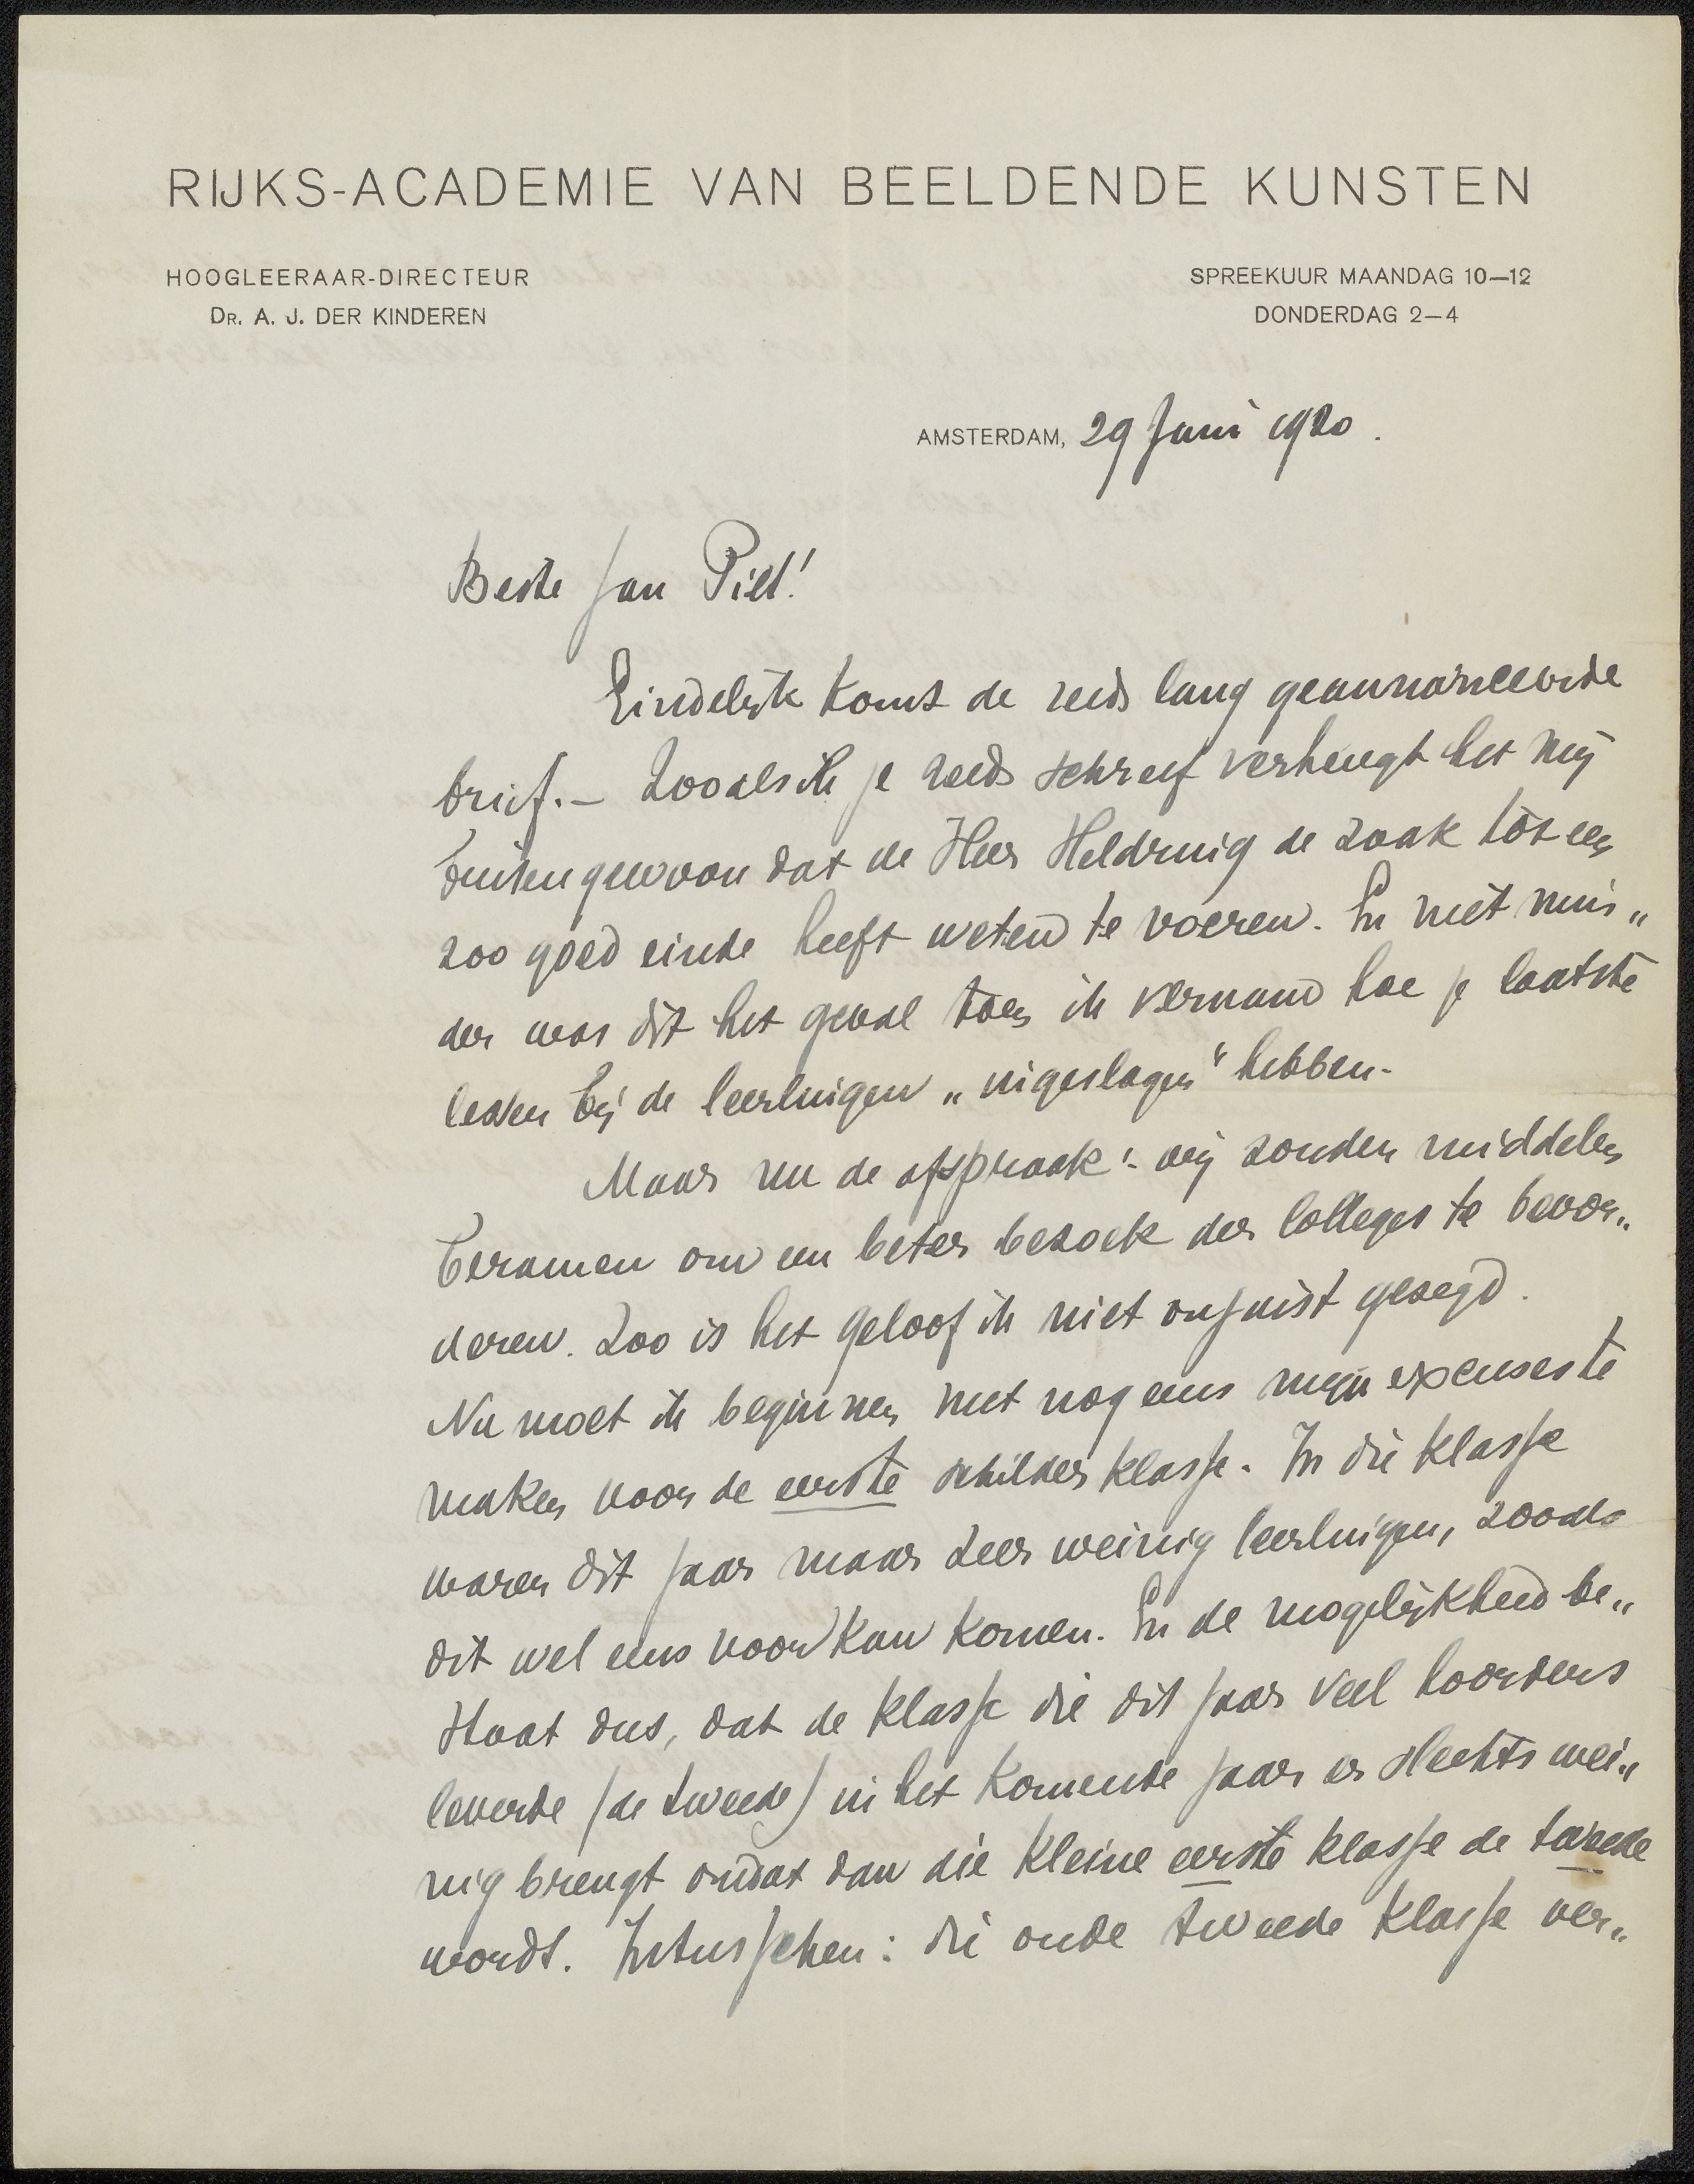 RIJKS-ACADEMIE VAN BEELDENDE KUNSTEN
HOOGLEERAAR-DIRECTEUR
DR. A. J. DER KINDEREN
SPREEKUUR MAANDAG 10—12
DONDERDAG 2—4
AMSTERDAM, 29 Juni 1920.
Beste Jan Piet!
Eindelijk komt de reeds lang geannonceerde
brief. — Zooals ik je reeds schreef verheugt het mij
buitengewoon dat de Heer Heldring de zaak tot een
zoo goed einde heeft weten te voeren. En niet min„
der was dit het geval toen ik vernam hoe je laatste
lessen bij de leerlingen „ingeslagen" hebben.
Maar nu de afspraak: wij zouden middelen
beramen om een beter bezoek der colleges te bevor„
deren. Zoo is het geloof ik niet onjuist gezegd.
Nu moet ik beginnen met nog eens mijn excuses te
maken voor de eerste schilderklasse. In die klasse
waren dit jaar maar zeer weinig leerlingen, zooals
dit wel eens voor kan komen. En de mogelijkheid be„
staat dus, dat de klasse die dit jaar veel hoorders
leverde (de tweede) in het komende jaar er slechts wei„
nig brengt omdat dan die kleine eerste klasse de tweede
wordt. Intusschen: die oude tweede klasse ver„